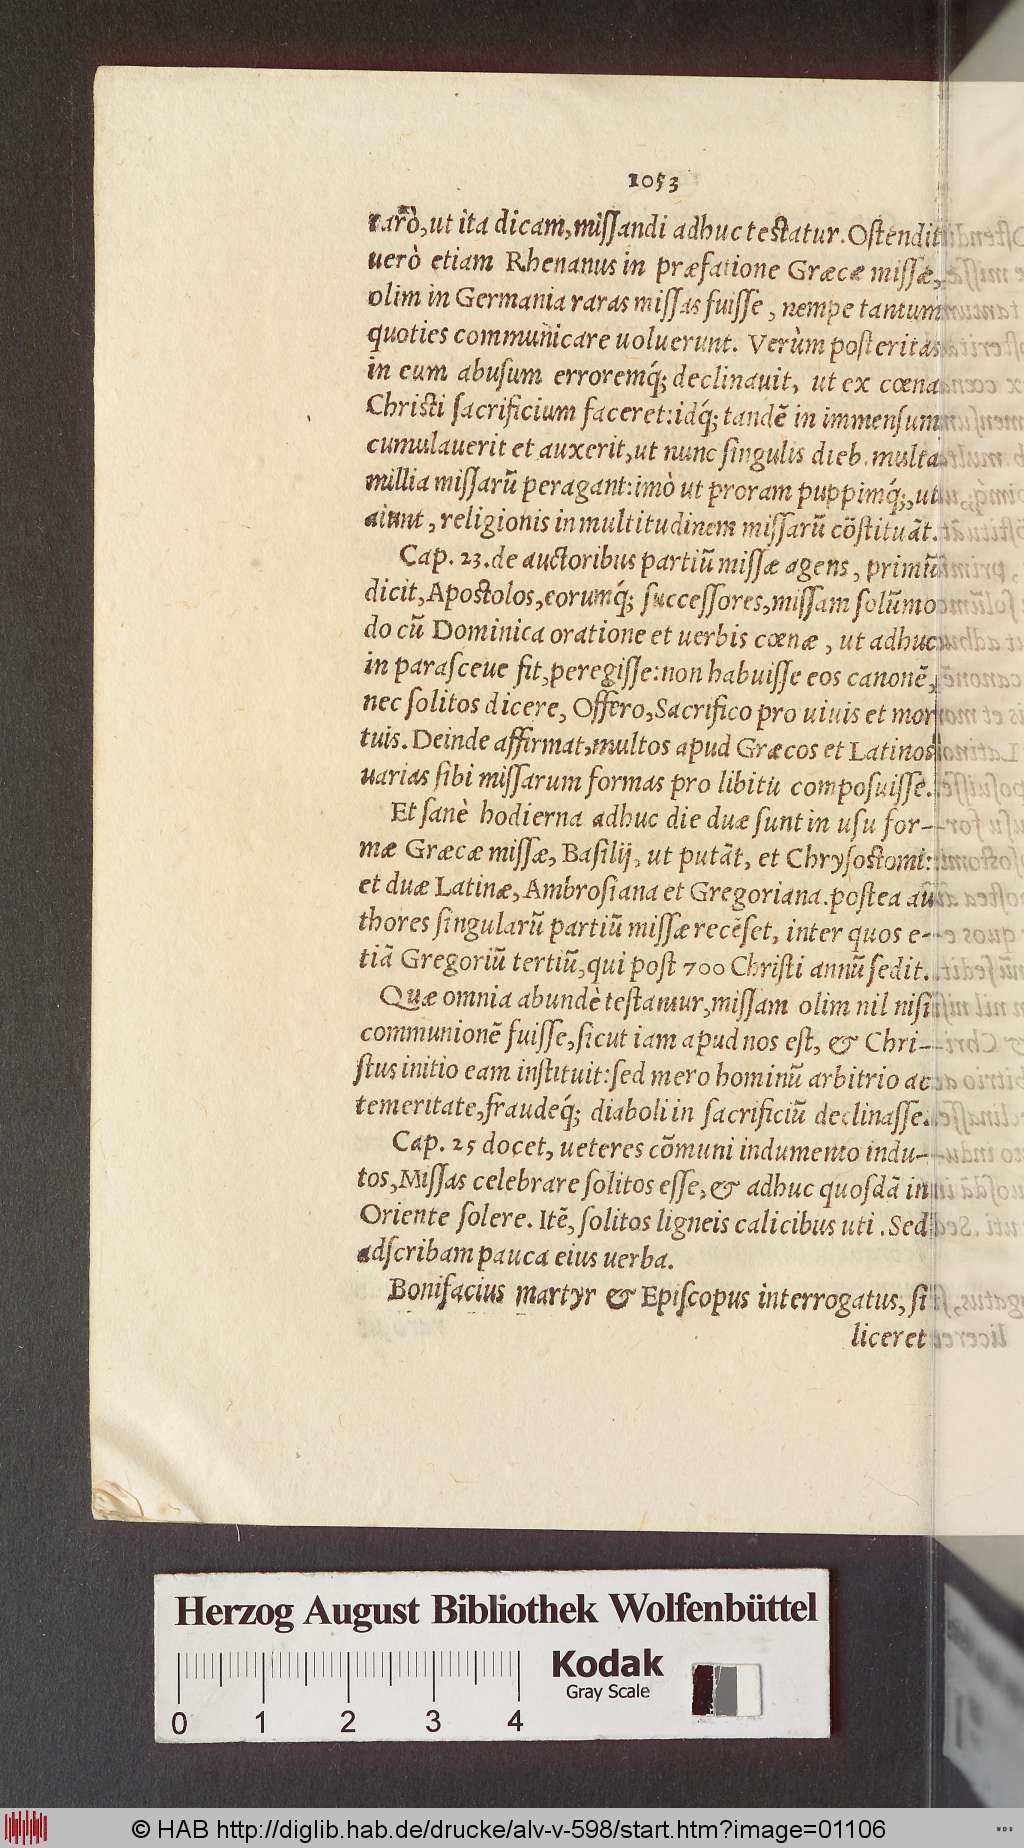 1053
rarò, ut ita dicam, miſſandi adhuc teſtatur. Oſtendit
uerò etiam Rhenanus in præfatione Græcæ miſſæ,
olim in Germania raras miſſas fuiſſe, nempe tantum
quoties communicare uoluerunt. Verùm poſteritas
in eum abuſum erroremq́; declinauit, ut ex cœna
Chriſti ſacrificium faceret: idq́; tandẽ in immenſum
cumulauerit et auxerit, ut nunc ſingulis dieb. multa
millia miſſarũ peragant: imò ut proram puppimq́;, ut
aiunt, religionis in multitudinem miſſarũ cõſtituãt.
Cap. 23. de auctoribus partiũ miſſæ agens, primũ
dicit, Apoſtolos, eorumq́; ſucceſſores, miſſam ſolũmo
do cũ Dominica oratione et uerbis cœnæ, ut adhuc
in paraſceue fit, peregiſſe: non habuiſſe eos canonẽ,
nec ſolitos dicere, Offero, Sacrifico pro uiuis et mor
tuis. Deinde affirmat, multos apud Græcos et Latinos
uarias ſibi miſſarum formas pro libitu compoſuiſſe.
Et ſanè hodierna adhuc die duæ ſunt in uſu for-
mæ Græcæ miſſæ, Baſilij, ut putãt, et Chryſoſtomi:
et duæ Latinæ, Ambroſiana et Gregoriana. poſtea au
thores ſingularũ partiũ miſſæ recẽſet, inter quos e-
tiã Gregoriũ tertiũ, qui poſt 700 Chriſti annũ ſedit.
Quæ omnia abundè teſtantur, miſſam olim nil niſi
communionẽ fuiſſe, ſicut iam apud nos eſt, & Chri-
ſtus initio eam inſtituit: ſed mero hominũ arbitrio ac
temeritate, fraudeq́; diaboli in ſacrificiũ declinaſſe.
Cap. 25 docet, ueteres cõmuni indumento indu-
tos, Miſſas celebrare ſolitos eſſe, & adhuc quoſdã in
Oriente ſolere. Itẽ, ſolitos ligneis calicibus uti. Sed
adſcribam pauca eius uerba.
Bonifacius martyr & Epiſcopus interrogatus, ſi
liceret
Herzog August Bibliothek Wolfenbüttel
Kodak
Gray Scale
0 1 2 3 4
© HAB http://diglib.hab.de/drucke/alv-v-598/start.htm?image=01106